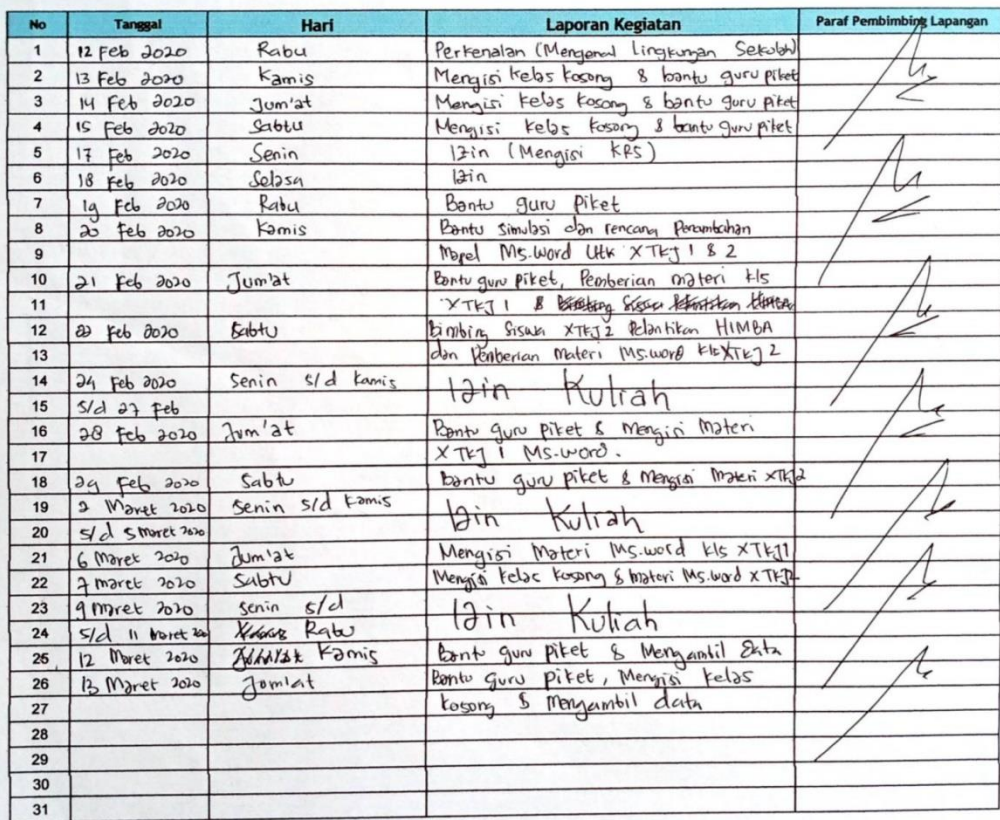 No Tanggal Hari Laporan Kegiatan Paraf Pembimbing Lapangan
1 12 Feb 2020 Rabu Perkenalan (Mengenal Lingkungan Sekolah)
2 13 Feb 2020 Kamis Mengisi kelas kosong & bantu guru piket
3 14 Feb 2020 Jum'at Mengisi kelas kosong & bantu guru piket
4 15 Feb 2020 Sabtu Mengisi kelas kosong & bantu guru piket
5 17 Feb 2020 Senin Izin (Mengisi KRS)
6 18 Feb 2020 Selasa Izin
7 19 Feb 2020 Rabu Bantu guru piket
8 20 Feb 2020 Kamis Bantu simulasi dan rencana Penambahan
9 Mapel Ms.word Utk X TKJ 1 & 2
10 21 Feb 2020 Jum'at Bantu guru piket, Pemberian materi kls
11 X TKJ 1 &
12 22 Feb 2020 Sabtu Bimbing Siswa XTKJ2 Pelantikan HIMBA
13 dan Pemberian Materi Ms.word kls XTKJ 2
14 24 Feb 2020 Senin s/d Kamis Izin Kuliah
15 s/d 27 Feb
16 28 Feb 2020 Jum'at Bantu guru piket & Mengisi Materi
17 X TKJ 1 Ms.word.
18 29 Feb 2020 Sabtu Bantu guru piket & Mengisi Materi XTKJ2
19 2 Maret 2020 Senin s/d Kamis Izin Kuliah
20 s/d 5 Maret 2020
21 6 Maret 2020 Jum'at Mengisi Materi Ms.word kls XTKJ1
22 7 Maret 2020 Sabtu Mengisi kelas kosong & materi Ms.word XTKJ2
23 9 Maret 2020 Senin s/d Izin Kuliah
24 s/d 11 Maret Rabu
25 12 Maret 2020 Kamis Bantu guru piket & Mengambil data
26 13 Maret 2020 Jum'at Bantu guru piket, Mengisi kelas
27 kosong & Mengambil data
28
29
30
31